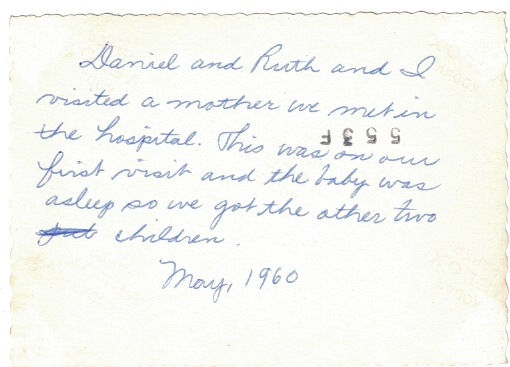 Daniel and Ruth and I
visited a mother we met in
the hospital. This was on our
5553F
first visit and the baby was
asleep so we got the other two
children.
May, 1960